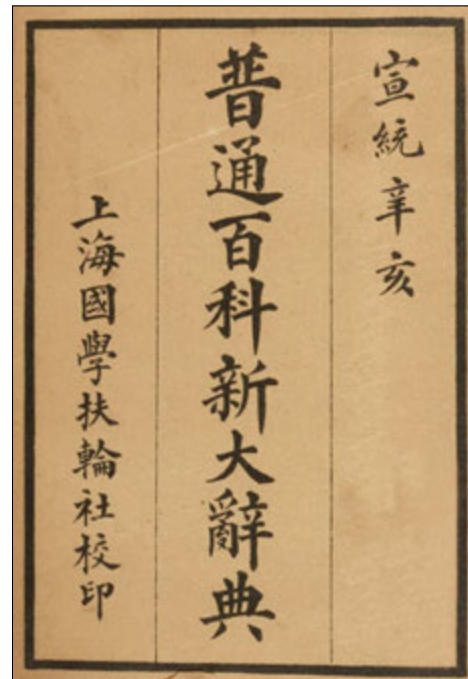 宣統辛亥
普通百科新大辭典
上海國學扶輪社校印